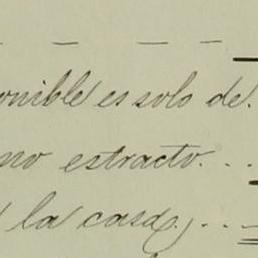 onible es solo de.
mo extracto. . .
la casa). . .